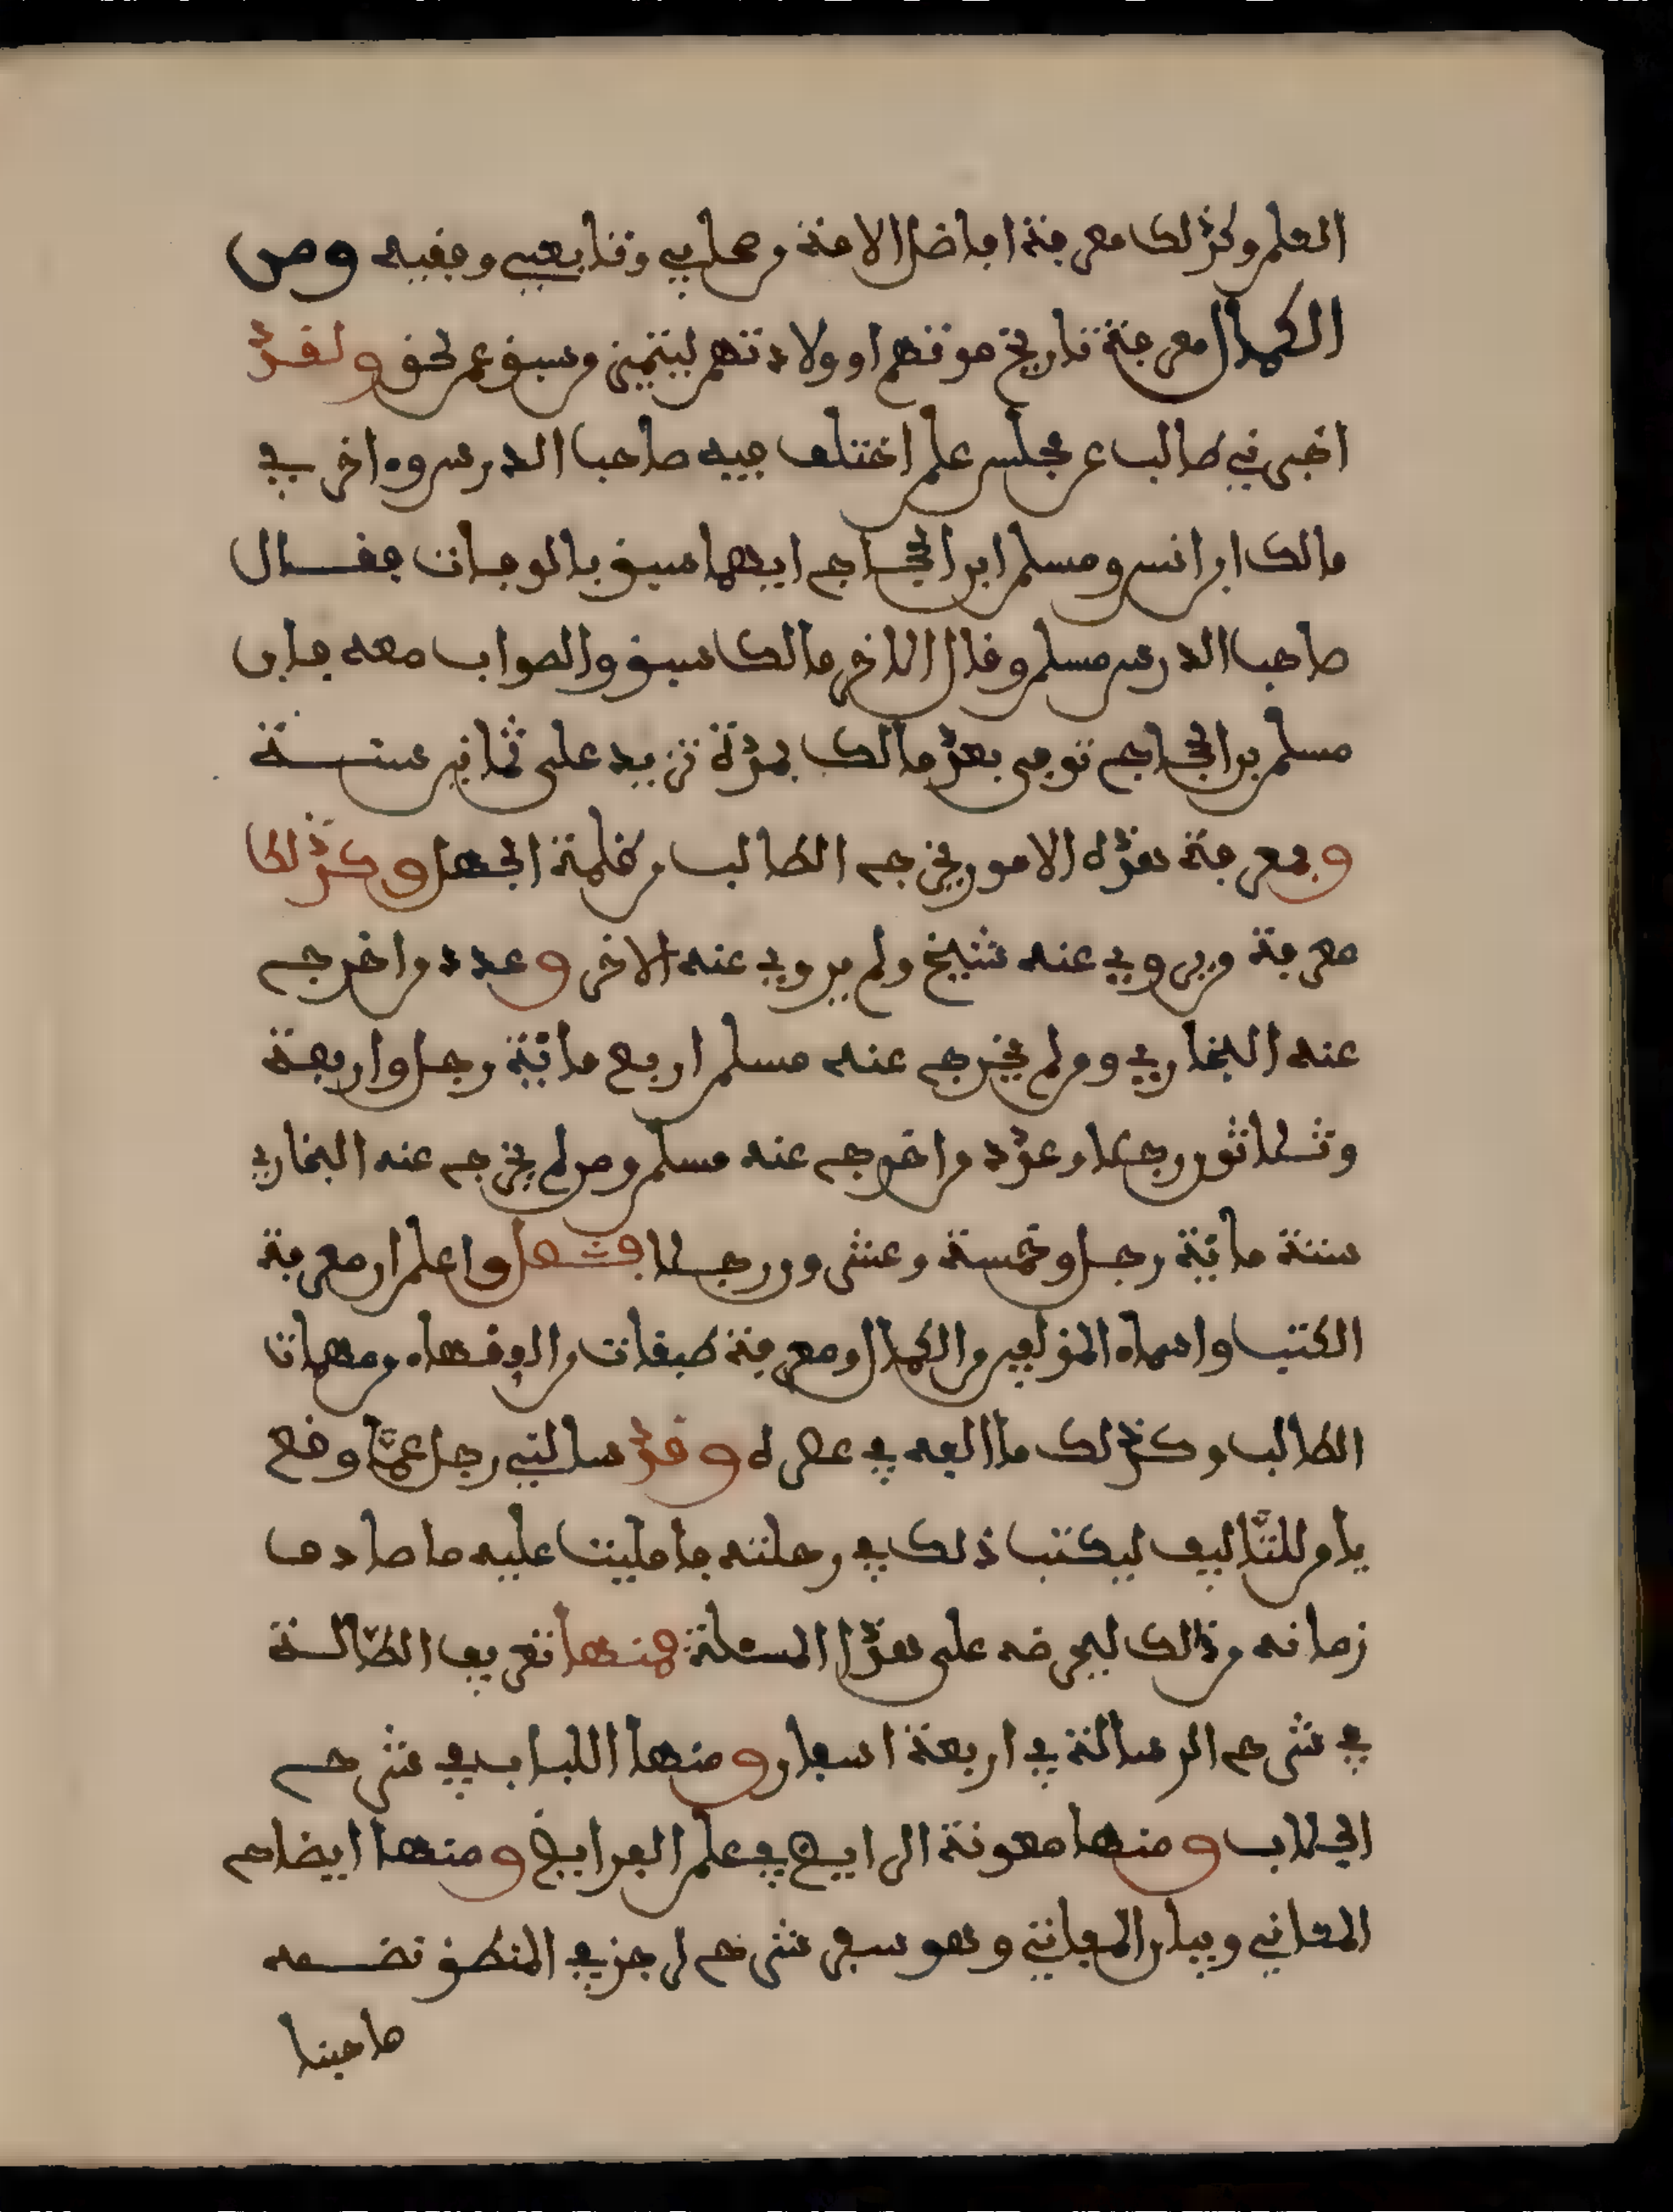 العلم وكذلك معرفة افاضل الامة من صحابي وتابعي وفقيه ومن
الكمال معرفة تاريخ موتهم او ولادتهم ليتميز من سبق عمن لحق ولقد
اخبرني طالب عن مجلس علم اختلف فيه صاحب الدرس وءاخر في
مالك ابن انس ومسلم ابن الحجاج ايهما سبق بالوفات فقال
صاحب الدرس مسلم وقال الاخر مالك سبق والصواب معه فان
مسلم بن الحجاج توفي بعد مالك بمدة تزيد على ثمانين سنة
وبمعرفة هذه الامور يخرج الطالب من ظلمة الجهل وكذلك
معرفة من يروي عنه شيخ ولم يروي عنه الاخر وعدد من اخرج
عنه البخاري ومن لم يخرج عنه مسلم اربع مائة رجل واربعة
وثلاثون رجلا وعدد من اخرج عنه مسلم ومن لم يخرج عنه البخاري
ستة مائة رجل وخمسة وعشرون رجلا واعلم ان معرفة
الكتب واسماء المؤلفين من الكمال ومعرفة طبقات الفقهاء من مهمات
الطالب وكذلك ما الفه في عصره وقد سالني رجل عما وقع
يام للتاليف ليكتب ذلك في رحلته فامليت عليه ما صادف
زمانه من ذالك ليعرضه على هذا المسئلة فمنها تعريف الطالبة
في شرح الرسالة في اربعة اسفار ومنها اللباب في شرح
الجلاب ومنها معونة الرايض في علم الفرايض ومنها ايضاح
المعاني وبيان المباني وهو سفر شرح لرجز في المنطق نضمه
صاحبنا